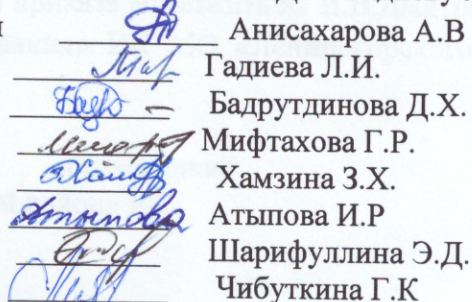 Анисахарова А.В
Гадиева Л.И.
Бадрутдинова Д.Х.
Мифтахова Г.Р.
Хамзина З.Х.
Атыпова Атыпова И.Р
Шарифуллина Э.Д.
Чибуткина Г.К